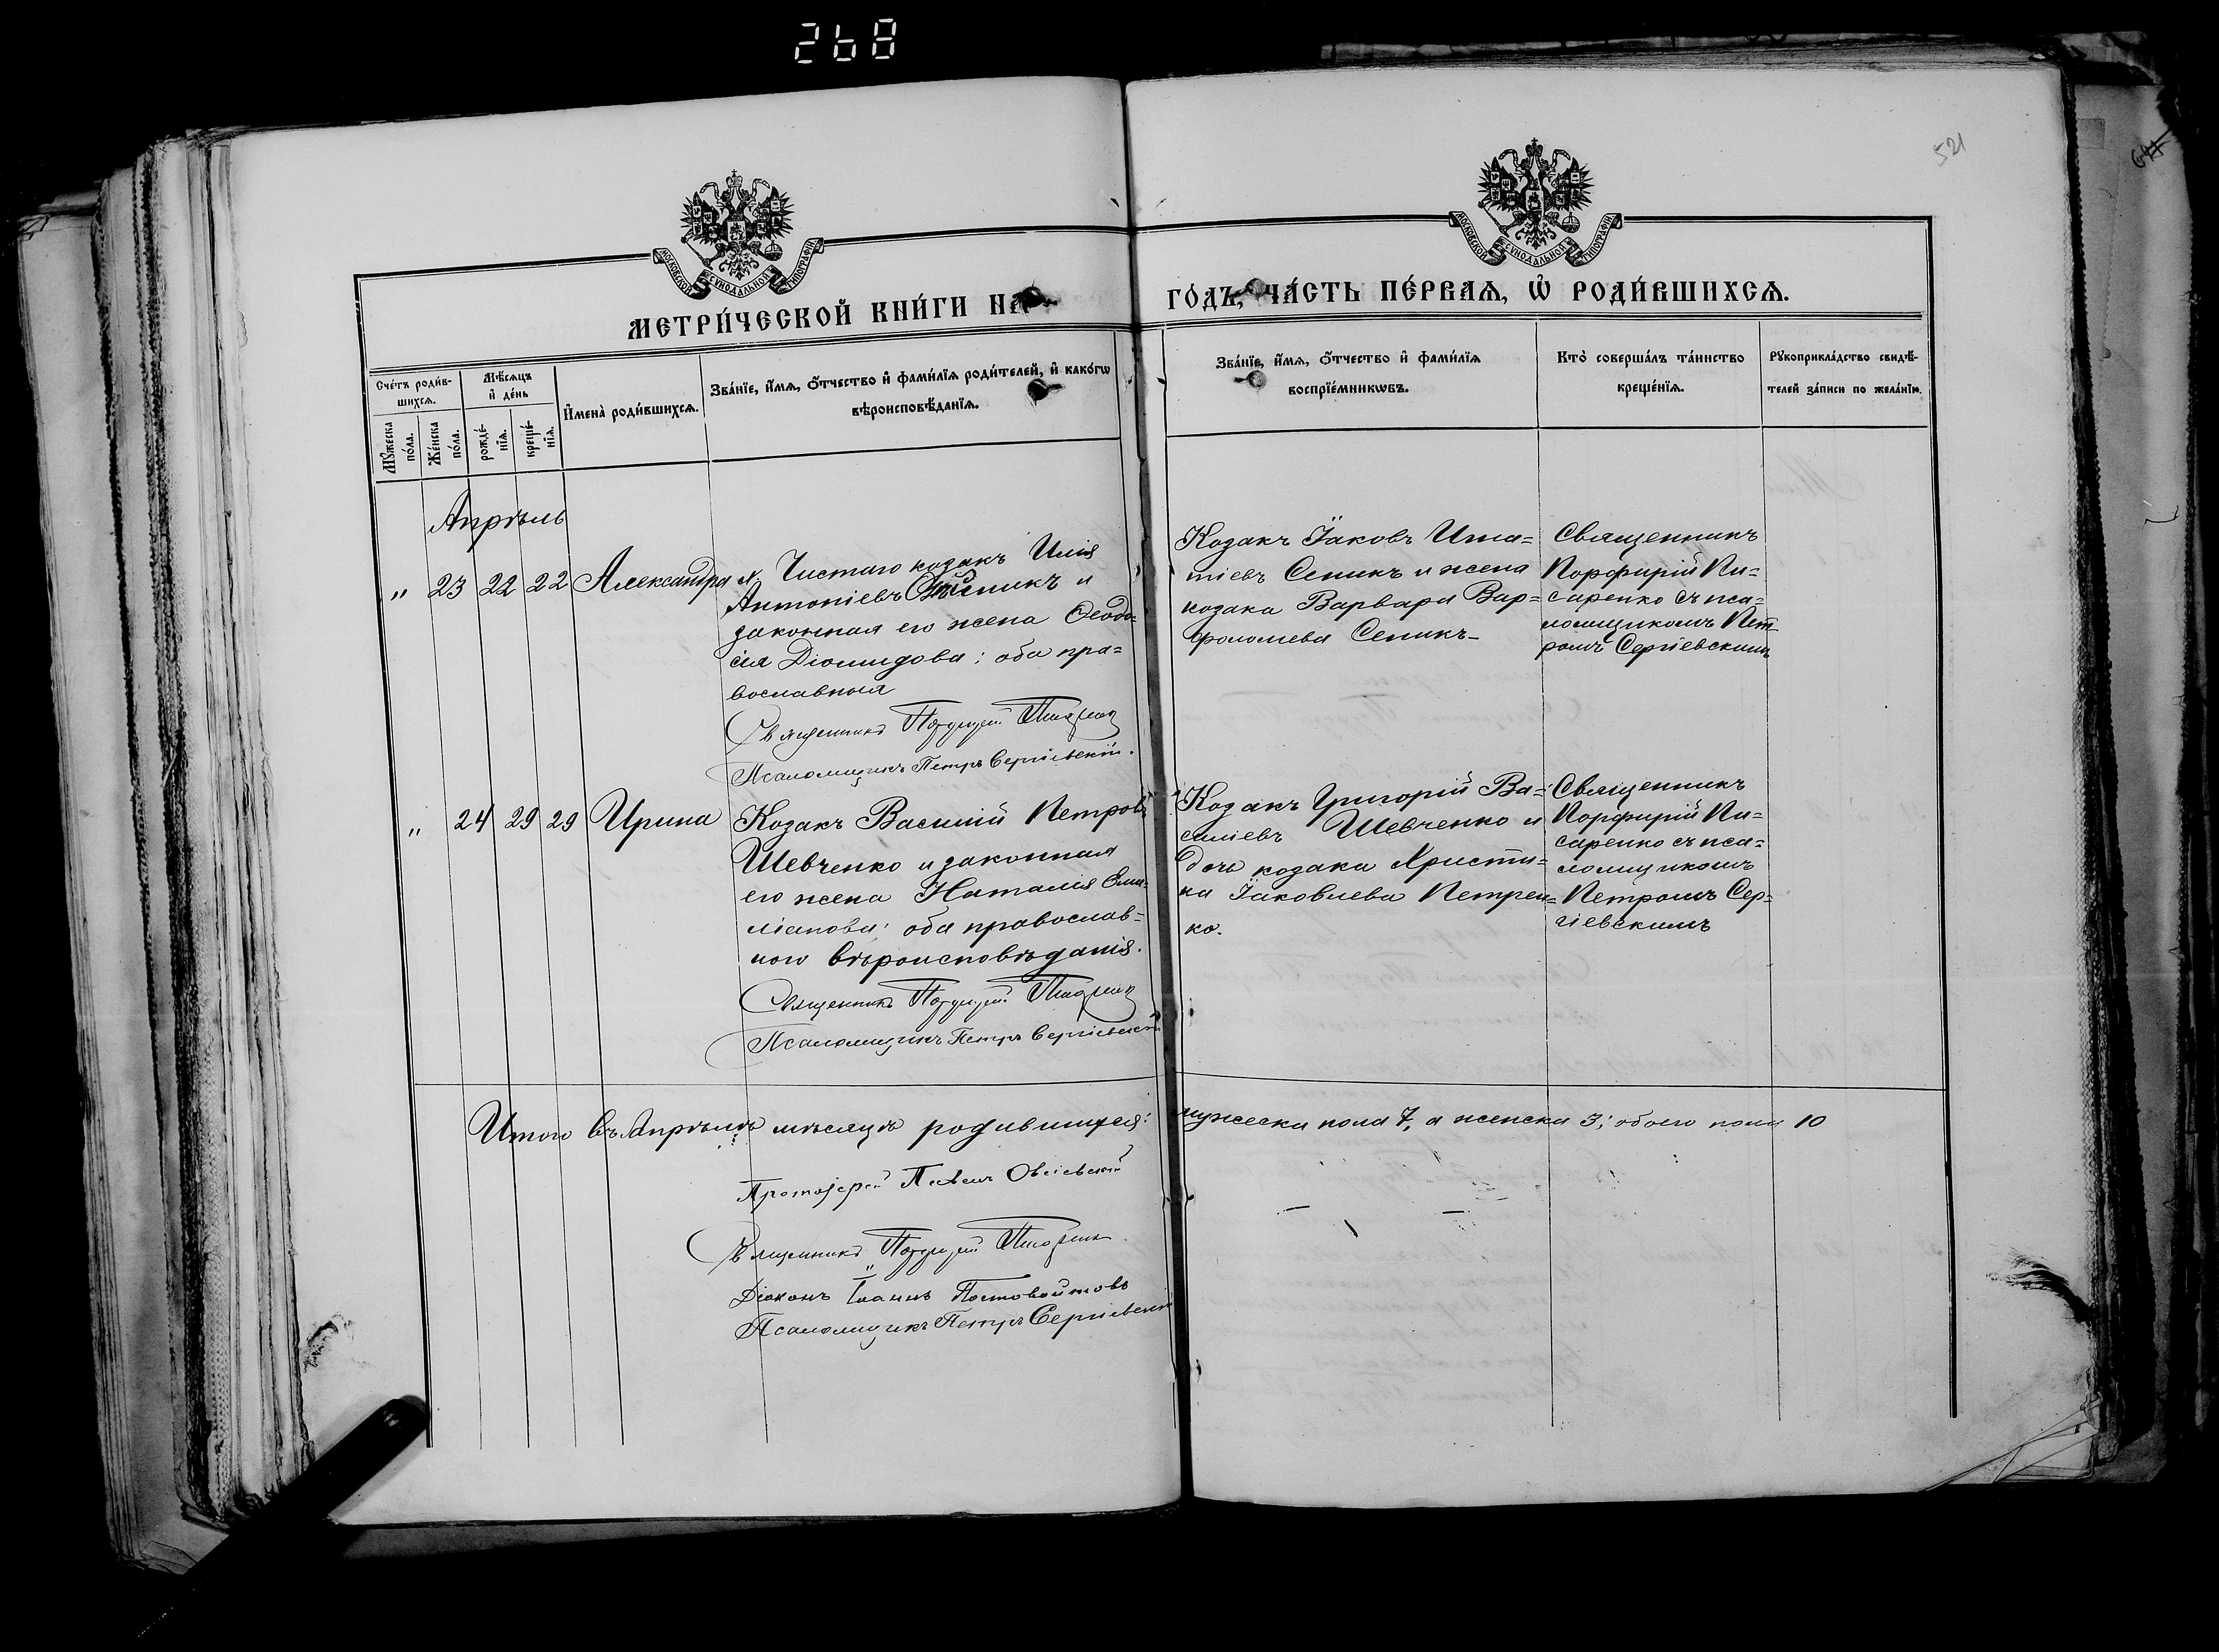 268
521
МОСКОВСКОЙ СѴНОДАЛЬНОЙ ТИПОГРАФІИ
МОСКОВСКОЙ СѴНОДАЛЬНОЙ ТИПОГРАФІИ
МЕТРИ́ЧЕСКОЙ КНИ́ГИ НА
ГО́ДЪ, ЧА́СТЬ ПЕ́РВАѦ, Ѡ҆ РОДИ́ВШИХСѦ.
Сче́тъ роди́в-
шихсѧ.
Мꙋ́жеска
по́ла.
Же́нска
по́ла.
Мѣ́сѧцъ
и҆ де́нь
рожде́-
нїѧ.
креще́-
нїѧ.
И҆мена̀ роди́вшихсѧ.
Зва́нїе, и҆́мѧ, ѻ҆́тчество и҆ фами́лїѧ роди́телей, и҆ како́гѡ
вѣроисповѣ́данїѧ.
Зва́нїе, и҆́мѧ, ѻ҆́тчество и҆ фами́лїѧ
воспрїе́мникѡвъ.
Кто̀ соверша́лъ та́инство
креще́нїѧ.
Рꙋкоприкла́дство свидѣ́-
телей за́писи по жела́нїю.
Апрѣль
" 23 22 22 Александра
х. Чистаго козакъ Илія
Антоніевъ Сеникъ и
законная его жена Ѳеодо=
сія Діомидова; оба пра=
вославныя
Священникъ Порфирій Писаренко
Псаломщикъ Петръ Сергіевскій.
Козакъ Іаковъ Игна=
тіевъ Сеникъ и жена
козака Варвара Вар=
фоломева Сеникъ-
Священникъ
Порфирій Пи=
саренко съ пса=
ломщикомъ Пет=
ромъ Сергіевскимъ
" 24 29 29 Ирина
Козакъ Василій Петровъ
Шевченко и законная
его жена Наталія Еми=
ліанова; оба православ=
ного вѣроисповѣданія.
Священникъ Порфирій Писаренко
Псаломщикъ Петръ Сергіевскій
Козакъ Григорій Ва=
силіевъ Шевченко и
дочь козака Христи=
на Іаковлева Петрен=
ко.
Священникъ
Порфирій Пи=
саренко съ пса=
ломщикомъ
Петромъ Сер=
гіевскимъ
Итого въ Апрѣлѣ мѣсяцѣ родившихся: мужеска пола 7, а женска 3; обоего пола 10
Протоіерей Павелъ
Священникъ Порфирій Писаренко
Діаконъ Іоаннъ Постовойтовъ
Псаломщикъ Петръ Сергіевскій